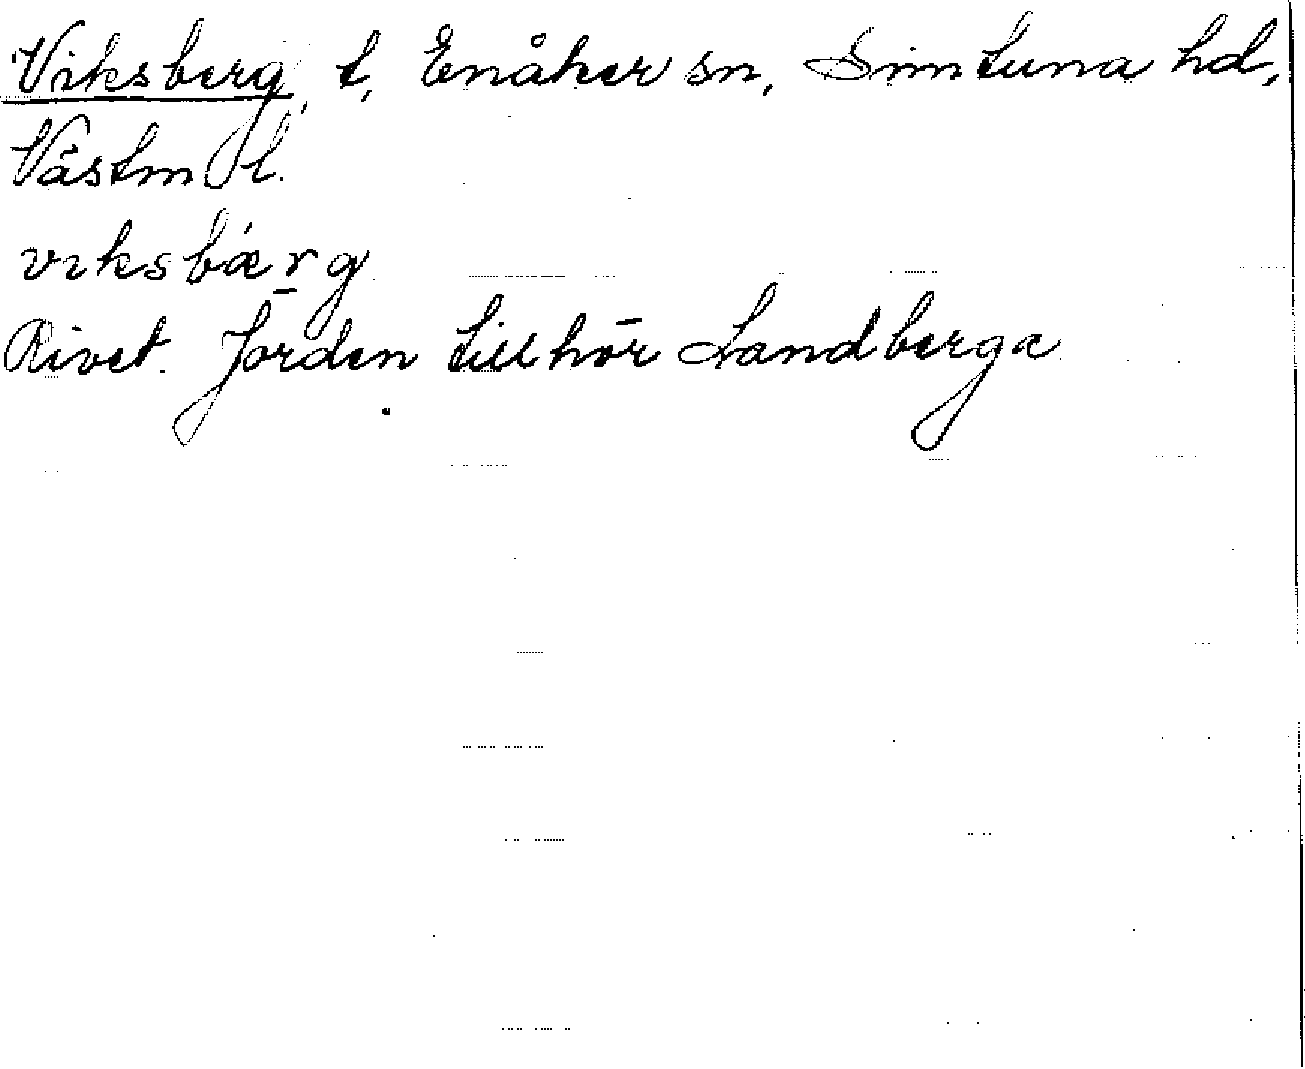 Viksberg, t, Enåker sn, Simtuna hd,
Västm l.
viksbǽrg
Rivet. Jorden tillhör Landberga